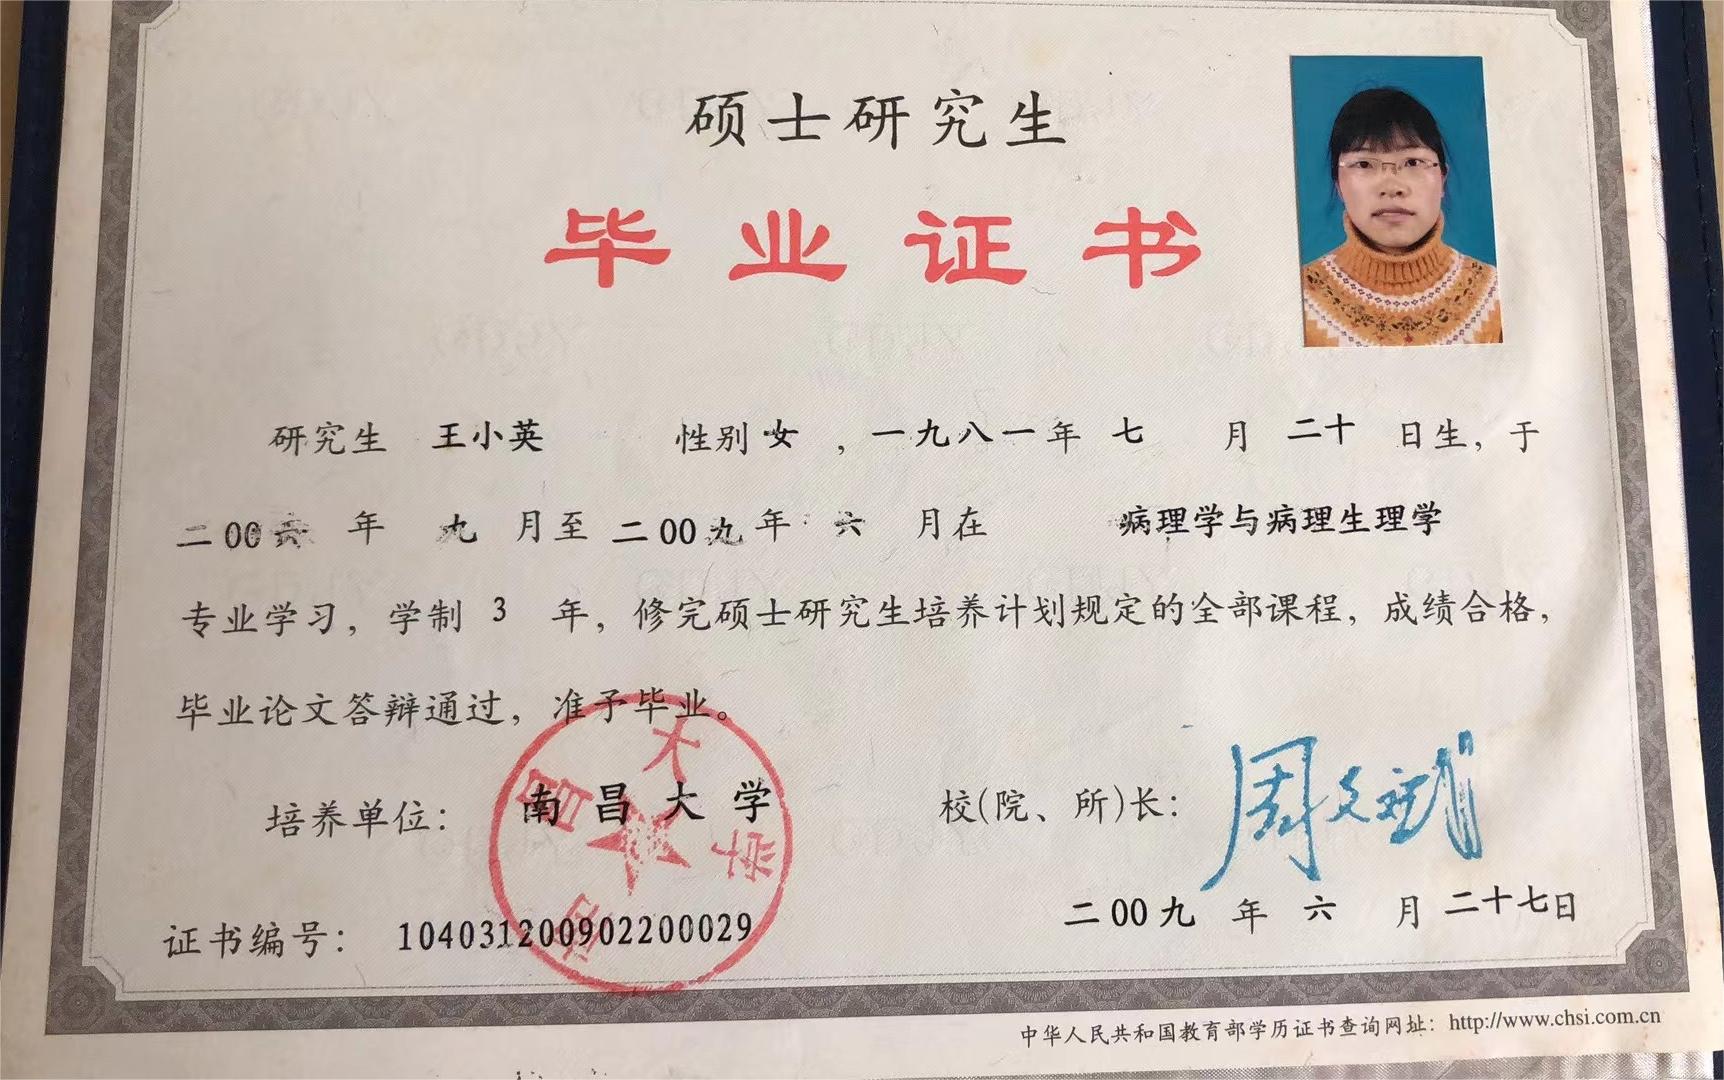 硕士研究生
毕业证书
研究生 王小英 性别 女 ，一九八一年 七 月 二十 日生，于
二00六 年 九 月至 二00九年 六 月在 病理学与病理生理学
专业学习，学制 3 年，修完硕士研究生培养计划规定的全部课程，成绩合格，
毕业论文答辩通过，准予毕业。
培养单位： 南昌大学 校(院、所)长： 周文斌
南昌大学
证书编号： 104031200902200029 二00九 年 六 月 二十七日
中华人民共和国教育部学历证书查询网址：http://www.chsi.com.cn